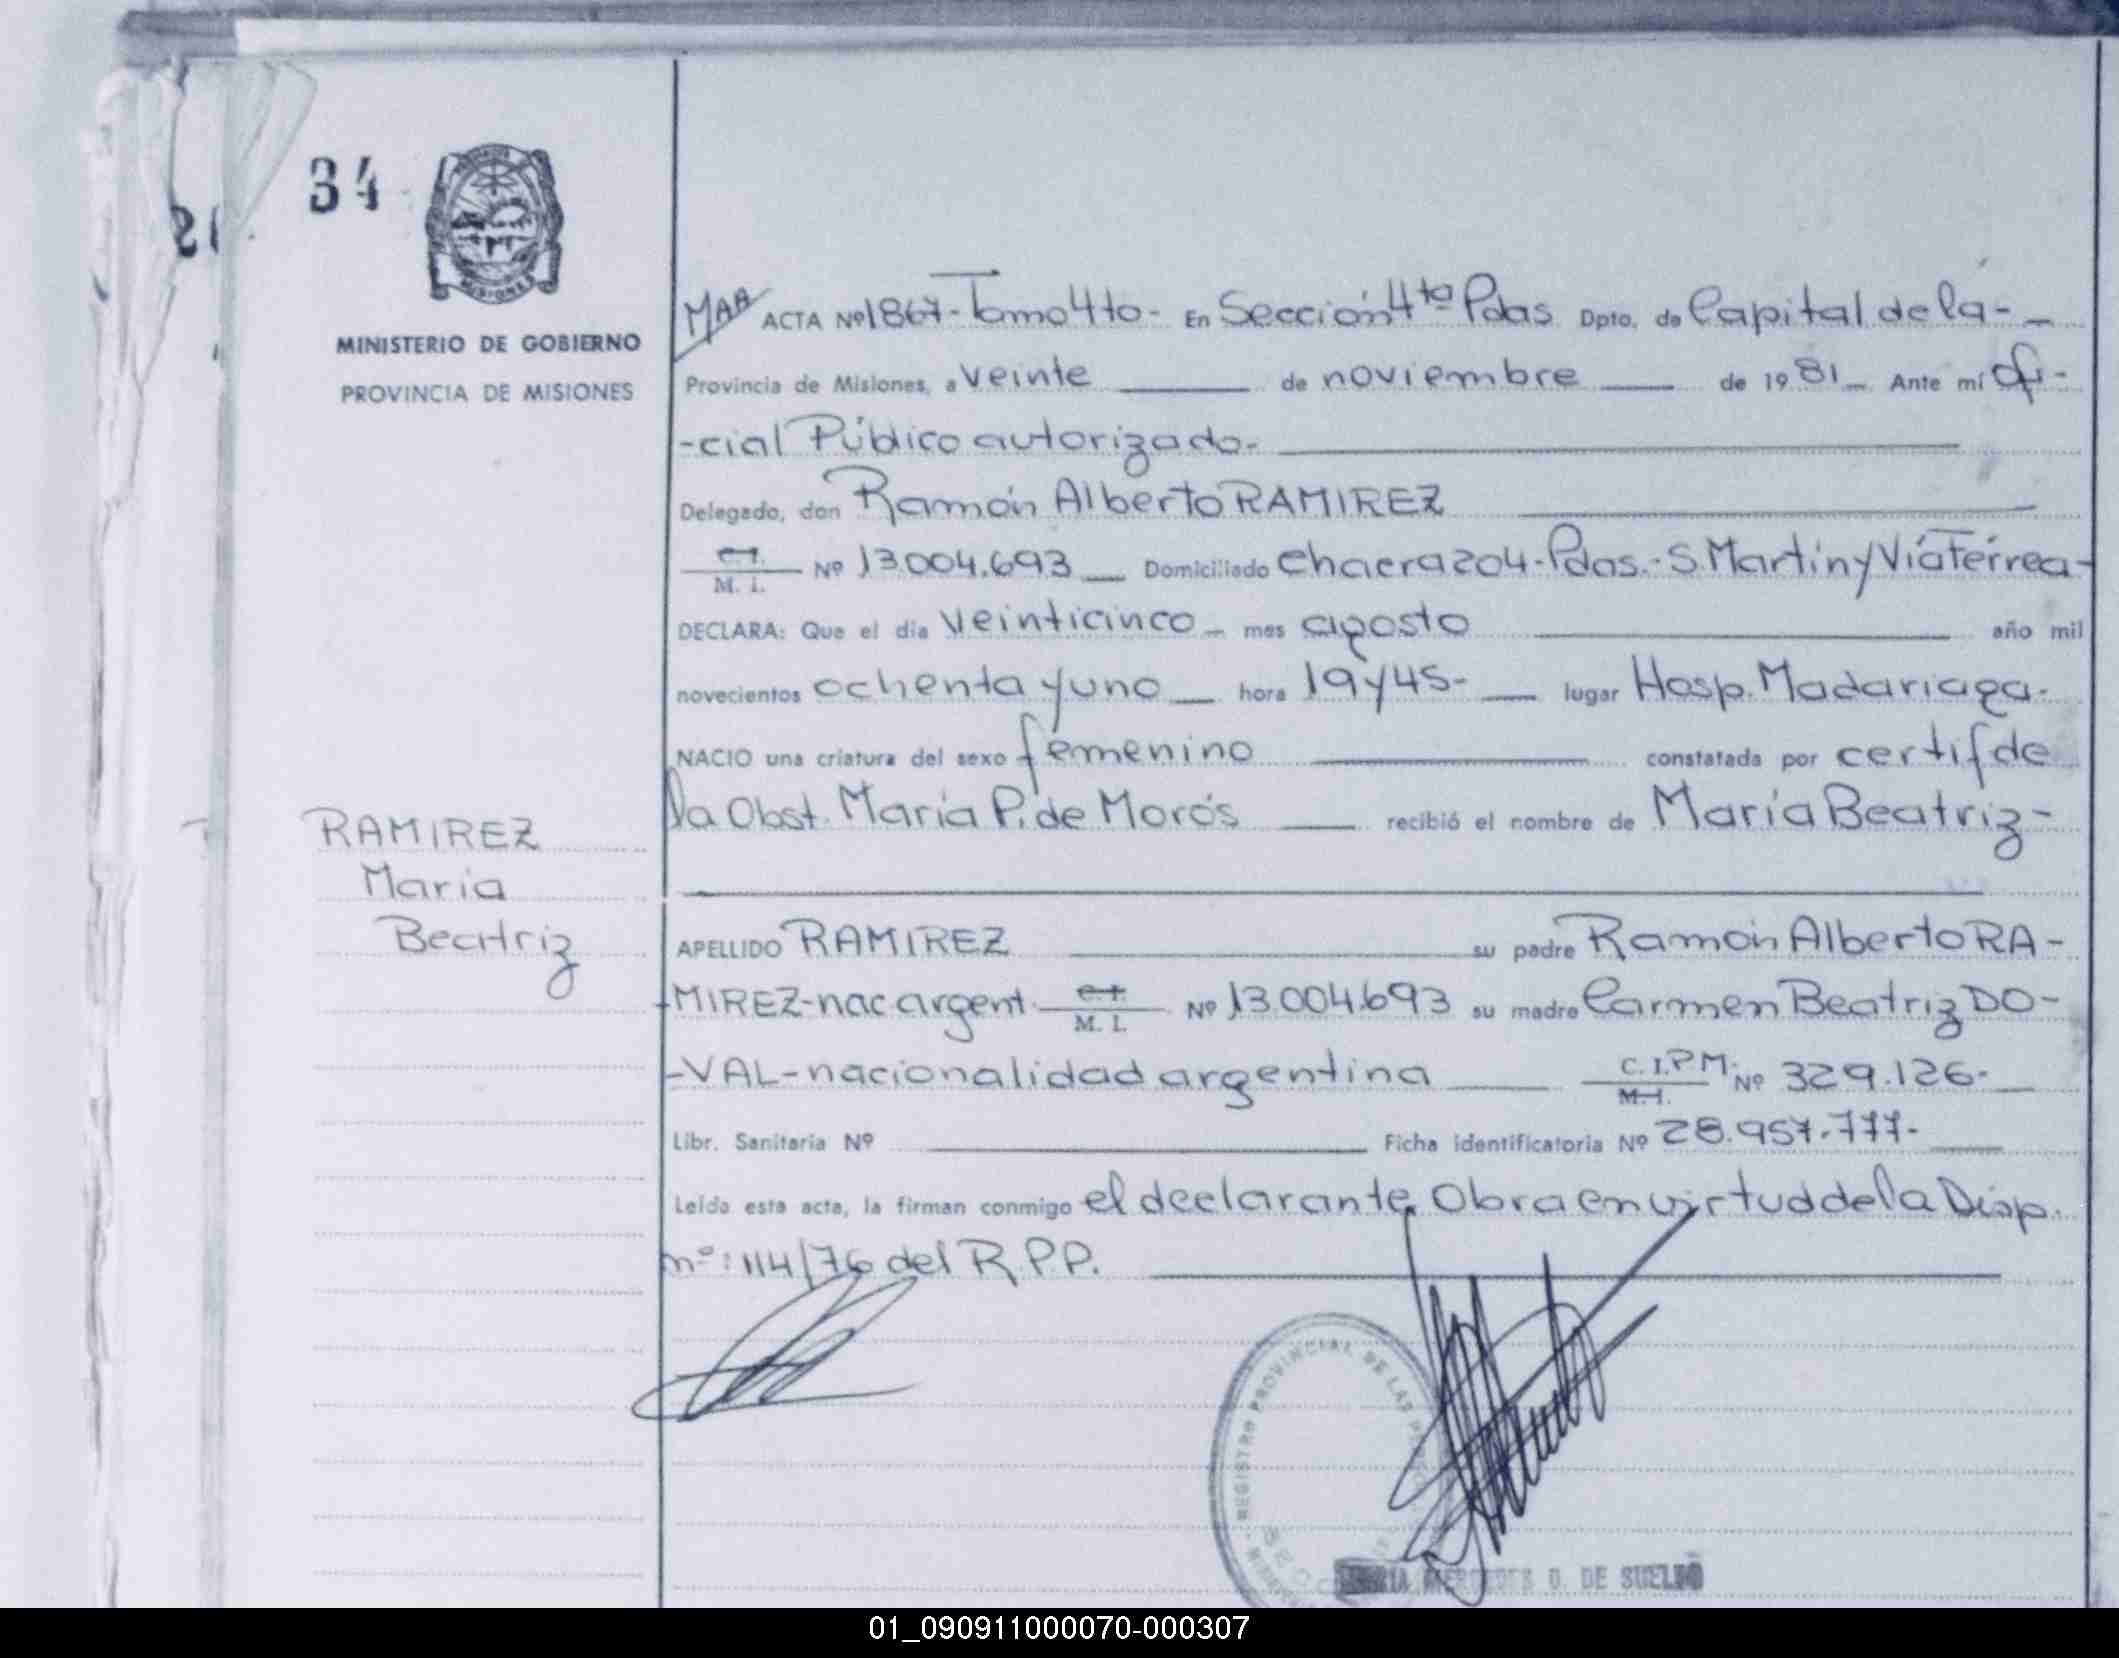 34
MINISTERIO DE GOBIERNO
PROVINCIA DE MISIONES
RAMIREZ
María
Beatriz
ACTA Nº 1867-Tomo 4to- En Sección 4ta Pdas Dpto. de Capital de la-
Provincia de Misiones, a veinte de noviembre de 1981 Ante mí Ofi-
-cial Público autorizado-
Delegado, don Ramón Alberto RAMIREZ
M. I. Nº 13.004.693 Domiciliado Chacra 204-Pdas.-S. Martín y Vía Férrea-
DECLARA: Que el día veinticinco mes agosto año mil
novecientos ochenta y uno hora 19 y 45- lugar Hosp. Madariaga-
NACIO una criatura del sexo femenino constatada por certif de
la Obst. María P. de Morós recibió el nombre de María Beatriz-
APELLIDO RAMIREZ su padre Ramón Alberto RA-
-MIREZ-nac argent. M. I. Nº 13.004.693 su madre Carmen Beatriz DO-
-VAL-nacionalidad argentina C.I.P.M. M. I. Nº 329.126-
Libr. Sanitaria Nº Ficha identificatoria Nº 28.957.777-
Leída esta acta, la firman conmigo el declarante. Obra en virtud de la Disp.
nº: 114/76 del R.P.P.
REGISTRO PROVINCIAL DE LAS
MARIA MERCEDES O. DE SUELDO
01_090911000070-000307